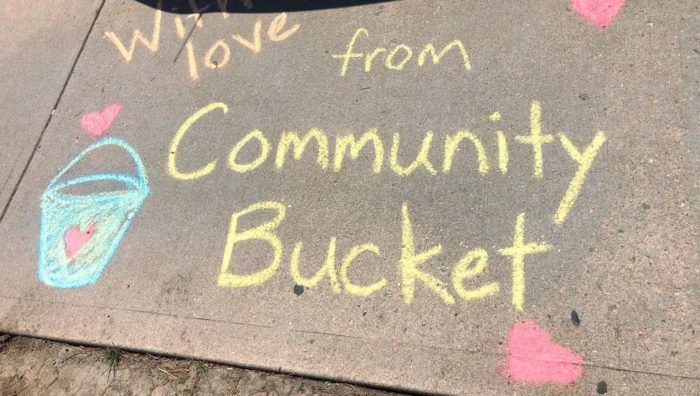 With
love
from
Community
Bucket